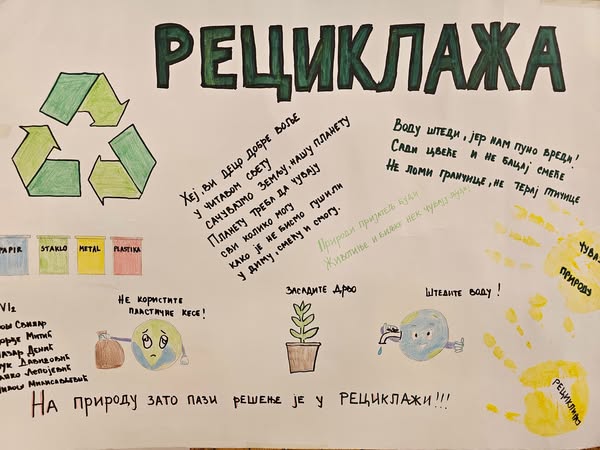 РЕЦИКЛАЖА
Хеј, ви децо добре воље
у читавом свету
сачувајмо Земљу, нашу планету
Планету треба да чувају
сви колико могу
како је не бисмо гушили
у диму, смећу и смогу.
Воду штеди, јер нам пуно вреди!
Сади цвеће и не бацај смеће
Не ломи гранчице, не терај птичице
Природи пријатељ буди
Животиње и биљке нек чувају људи
PAPIR
STAKLO
METAL
PLASTIKA
ЧУВАЈ
ПРИРОДУ
РЕЦИКЛИРАЈ
Не користите
пластичне кесе!
Засадите дрво
Штедите воду!
VI₂
Свилар
Митић
Лазар Денић
Вук Давидовић
Лепојевић
Милисављевић
На природу зато пази решење је у РЕЦИКЛАЖИ!!!